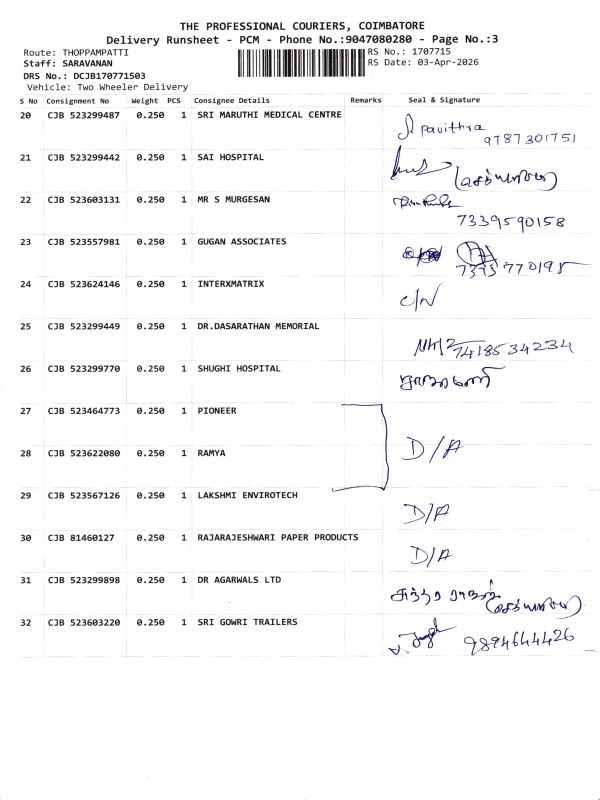 THE PROFESSIONAL COURIERS, COIMBATORE
Delivery Runsheet - PCM - Phone No.:9047080280 - Page No.:3
Route: THOPPAMPATTI
RS No.: 1707715
Staff: SARAVANAN
RS Date: 03-Apr-2026
DRS No.: DCJB170771503
Vehicle: Two Wheeler Delivery
S No Consignment No Weight PCS Consignee Details Remarks Seal & Signature
20 CJB 523299487 0.250 1 SRI MARUTHI MEDICAL CENTRE pavithra
9787301751
21 CJB 523299442 0.250 1 SAI HOSPITAL
22 CJB 523603131 0.250 1 MR S MURGESAN
7339590158
23 CJB 523557981 0.250 1 GUGAN ASSOCIATES
7373770195
24 CJB 523624146 0.250 1 INTERXMATRIX C/N
25 CJB 523299449 0.250 1 DR.DASARATHAN MEMORIAL
7418534234
26 CJB 523299770 0.250 1 SHUGHI HOSPITAL
27 CJB 523464773 0.250 1 PIONEER
28 CJB 523622080 0.250 1 RAMYA D/A
29 CJB 523567126 0.250 1 LAKSHMI ENVIROTECH D/A
30 CJB 81460127 0.250 1 RAJARAJESHWARI PAPER PRODUCTS D/A
31 CJB 523299898 0.250 1 DR AGARWALS LTD
32 CJB 523603220 0.250 1 SRI GOWRI TRAILERS 9894644426